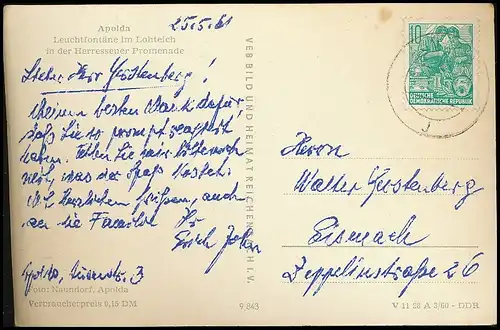 Apolda
Leuchtfontäne im Lohteich
in der Herressener Promenade
25.5.61
Lieber Herr Gerstenberg!
Meinen besten Dank dafür
daß Sie so prompt reagiert
haben. Teilen Sie mir bitte noch
mit, was der Spaß kostet.
Mit herzlichen Grüßen, auch
an die Familie Ihr
Erich
Apolda, 3
Foto: Naundorf, Apolda
Verbraucherpreis 0,15 DM
VEB BILD UND HEIMAT REICHENBACH I. V.
9 843
10
DEUTSCHE
DEMOKRATISCHE REPUBLIK
Herrn
Walter Gerstenberg
Eisenach
Zeppelinstraße 26
V 11 28 A 3/60 - DDR